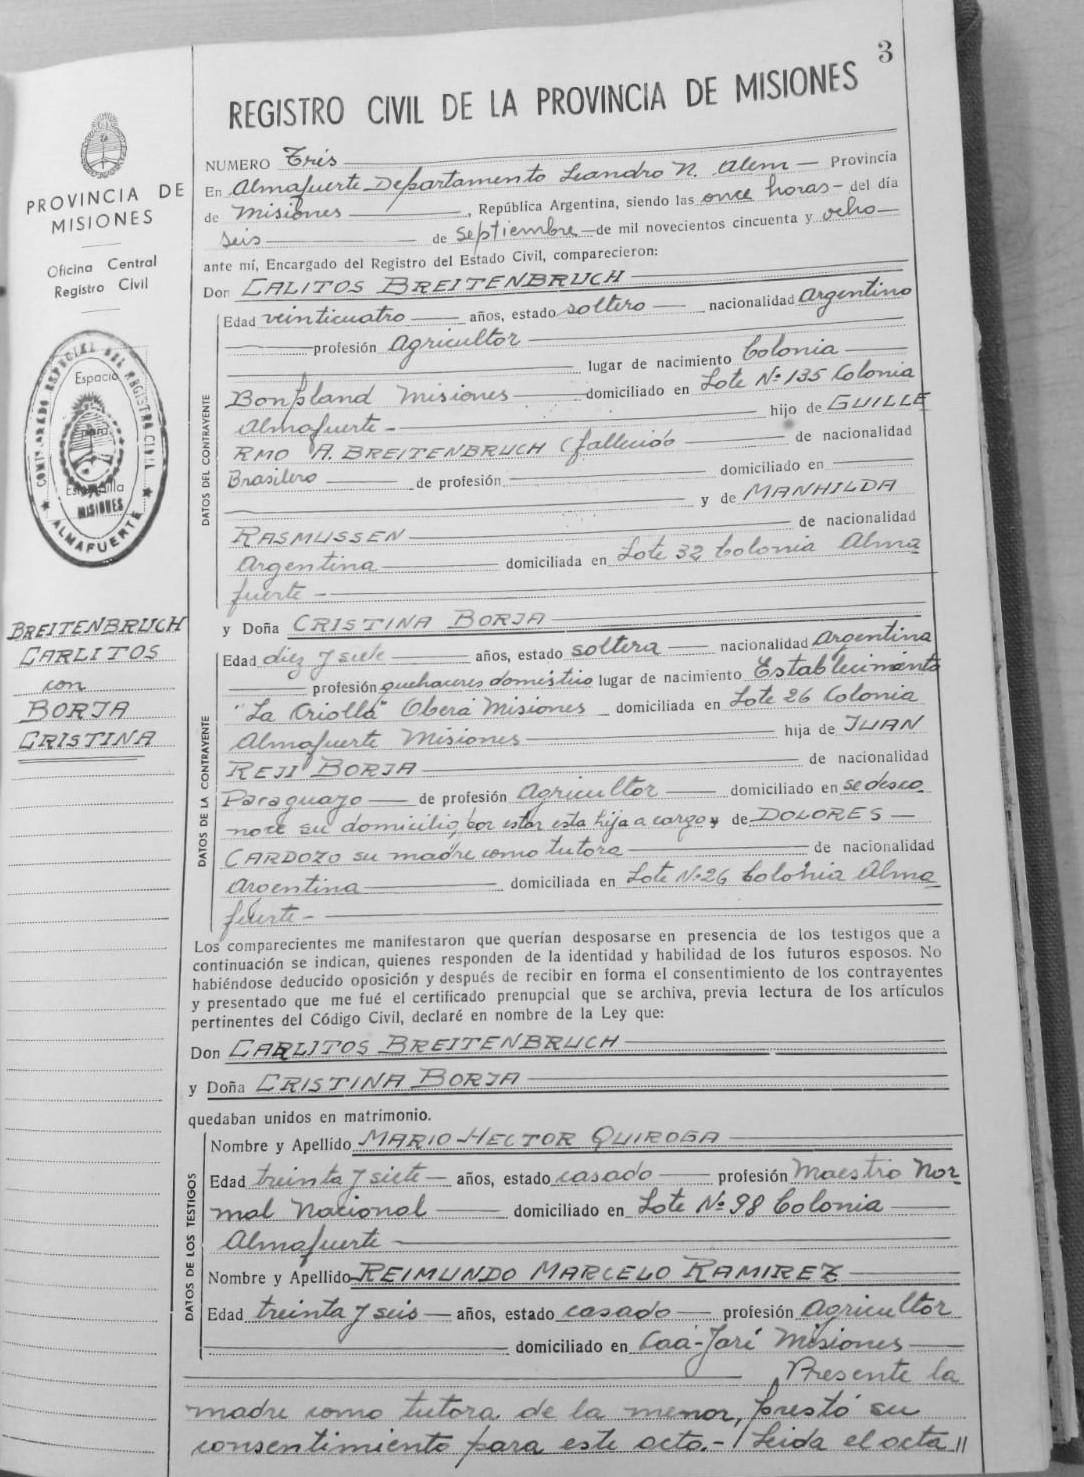 3
REGISTRO CIVIL DE LA PROVINCIA DE MISIONES
PROVINCIA DE
MISIONES
Oficina Central
Registro Civil
COMISARIADO ESPECIAL DEL REGISTRO CIVIL
Espacio
para
Estampilla
MISIONES
★ ALMAFUERTE ★
BREITENBRUCH
CARLITOS
con
BORJA
CRISTINA
NUMERO Trés
En Almafuerte Departamento Leandro N. Alem — Provincia
de Misiones —, República Argentina, siendo las once horas — del día
seis — de Septiembre — de mil novecientos cincuenta y ocho —
ante mí, Encargado del Registro del Estado Civil, comparecieron:
Don CALITOS BREITENBRUCH
DATOS DEL CONTRAYENTE
Edad veinticuatro — años, estado soltero — nacionalidad Argentino
— profesión Agricultor —
— lugar de nacimiento Colonia —
Bonpland Misiones — domiciliado en Lote Nº 135 Colonia
Almafuerte — hijo de GUILLE
RMO A. BREITENBRUCH (fallecido — de nacionalidad
Brasilero — de profesión — domiciliado en —
— y de MANHILDA
RASMUSSEN — de nacionalidad
Argentina — domiciliada en Lote 32 Colonia Alma
fuerte —
y Doña CRISTINA BORJA —
DATOS DE LA CONTRAYENTE
Edad diez y siete — años, estado soltera — nacionalidad Argentina
— profesión quehaceres domestico lugar de nacimiento Establecimento
"La Criolla" Oberá Misiones — domiciliada en Lote 26 Colonia
Almafuerte Misiones — hija de JUAN
REJI BORJA — de nacionalidad
Paraguayo — de profesión Agricultor — domiciliado en se desco
noce su domicilio, por estar esta hija a cargo y de DOLORES —
CARDOZO su madre como tutora — de nacionalidad
Argentina — domiciliada en Lote Nº 26 Colonia Alma
fuerte —
Los comparecientes me manifestaron que querían desposarse en presencia de los testigos que a
continuación se indican, quienes responden de la identidad y habilidad de los futuros esposos. No
habiéndose deducido oposición y después de recibir en forma el consentimiento de los contrayentes
y presentado que me fué el certificado prenupcial que se archiva, previa lectura de los artículos
pertinentes del Código Civil, declaré en nombre de la Ley que:
Don CARLITOS BREITENBRUCH —
y Doña CRISTINA BORJA —
quedaban unidos en matrimonio.
DATOS DE LOS TESTIGOS
Nombre y Apellido MARIO HECTOR QUIROGA —
Edad treinta y siete — años, estado casado — profesión Maestro Nor
mal Nacional — domiciliado en Lote Nº 98 Colonia —
Almafuerte —
Nombre y Apellido REIMUNDO MARCELO RAMIREZ —
Edad treinta y seis — años, estado casado — profesión Agricultor
— domiciliado en Caá-Jarí Misiones —
— Presente la
madre como tutora de la menor, prestó su
consentimiento para este acto.- Leida el acta //